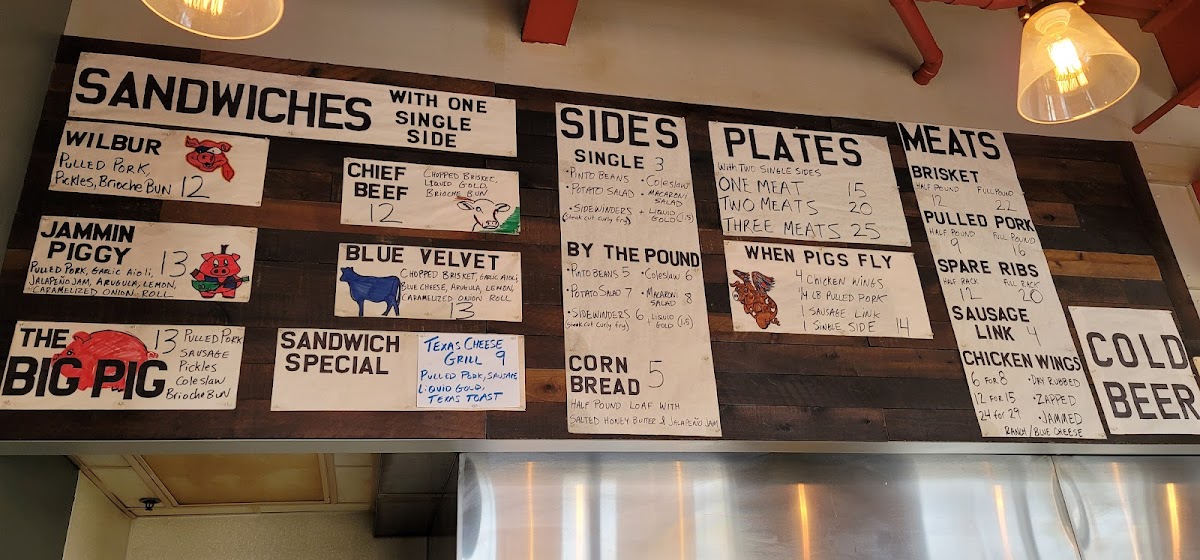 SANDWICHES
WITH ONE
SINGLE
SIDE
WILBUR
PULLED PORK,
PICKLES, BRIOCHE BUN 12
CHIEF
BEEF
12
CHOPPED BRISKET,
LIQUID GOLD,
BRIOCHE BUN
JAMMIN
PIGGY
13
PULLED PORK, GARLIC AIOLI,
JALAPEÑO JAM, ARUGULA, LEMON,
CARAMELIZED ONION ROLL
BLUE VELVET
CHOPPED BRISKET, GARLIC AIOLI,
BLUE CHEESE, ARUGULA, LEMON,
CARAMELIZED ONION ROLL
13
THE
BIG PIG
13
PULLED PORK
SAUSAGE
PICKLES
COLESLAW
BRIOCHE BUN
SANDWICH
SPECIAL
TEXAS CHEESE
GRILL 9
PULLED PORK, SAUSAGE
LIQUID GOLD,
TEXAS TOAST
SIDES
SINGLE 3
• PINTO BEANS • COLESLAW
• POTATO SALAD • MACARONI
SALAD
• SIDEWINDERS + LIQUID
(steak cut curly fry) GOLD (1.5)
BY THE POUND
• PINTO BEANS 5 • COLESLAW 6
• POTATO SALAD 7 • MACARONI
SALAD 8
• SIDEWINDERS 6 + LIQUID
(steak cut curly fry) GOLD (1.5)
CORN
BREAD 5
HALF POUND LOAF WITH
SALTED HONEY BUTTER & JALAPEÑO JAM
PLATES
WITH TWO SINGLE SIDES
ONE MEAT 15
TWO MEATS 20
THREE MEATS 25
WHEN PIGS FLY
4 CHICKEN WINGS
1/4 LB PULLED PORK
1 SAUSAGE LINK
1 SINGLE SIDE 14
MEATS
BRISKET
HALF POUND FULL POUND
12 22
PULLED PORK
HALF POUND FULL POUND
9 16
SPARE RIBS
HALF RACK FULL RACK
12 20
SAUSAGE
LINK 4
CHICKEN WINGS
6 FOR 8 • DRY RUBBED
12 FOR 15 • ZAPPED
24 FOR 29 • JAMMED
RANCH/BLUE CHEESE
COLD
BEER